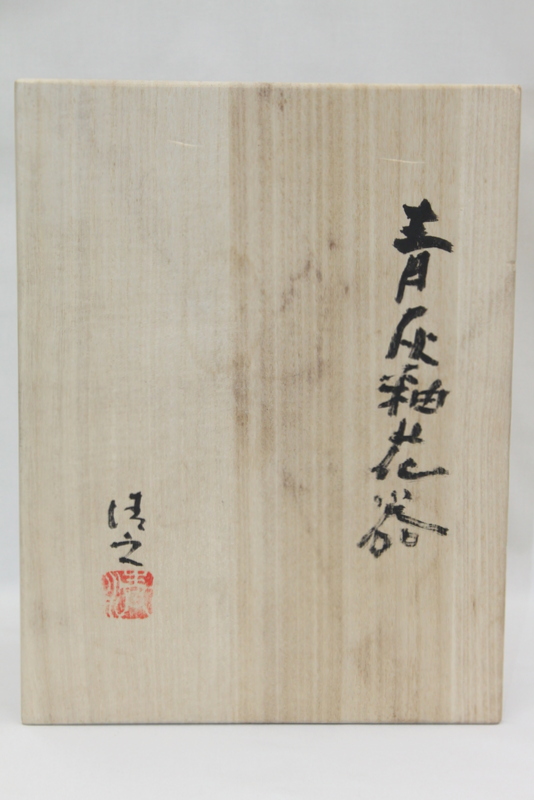 青灰釉花器
清之